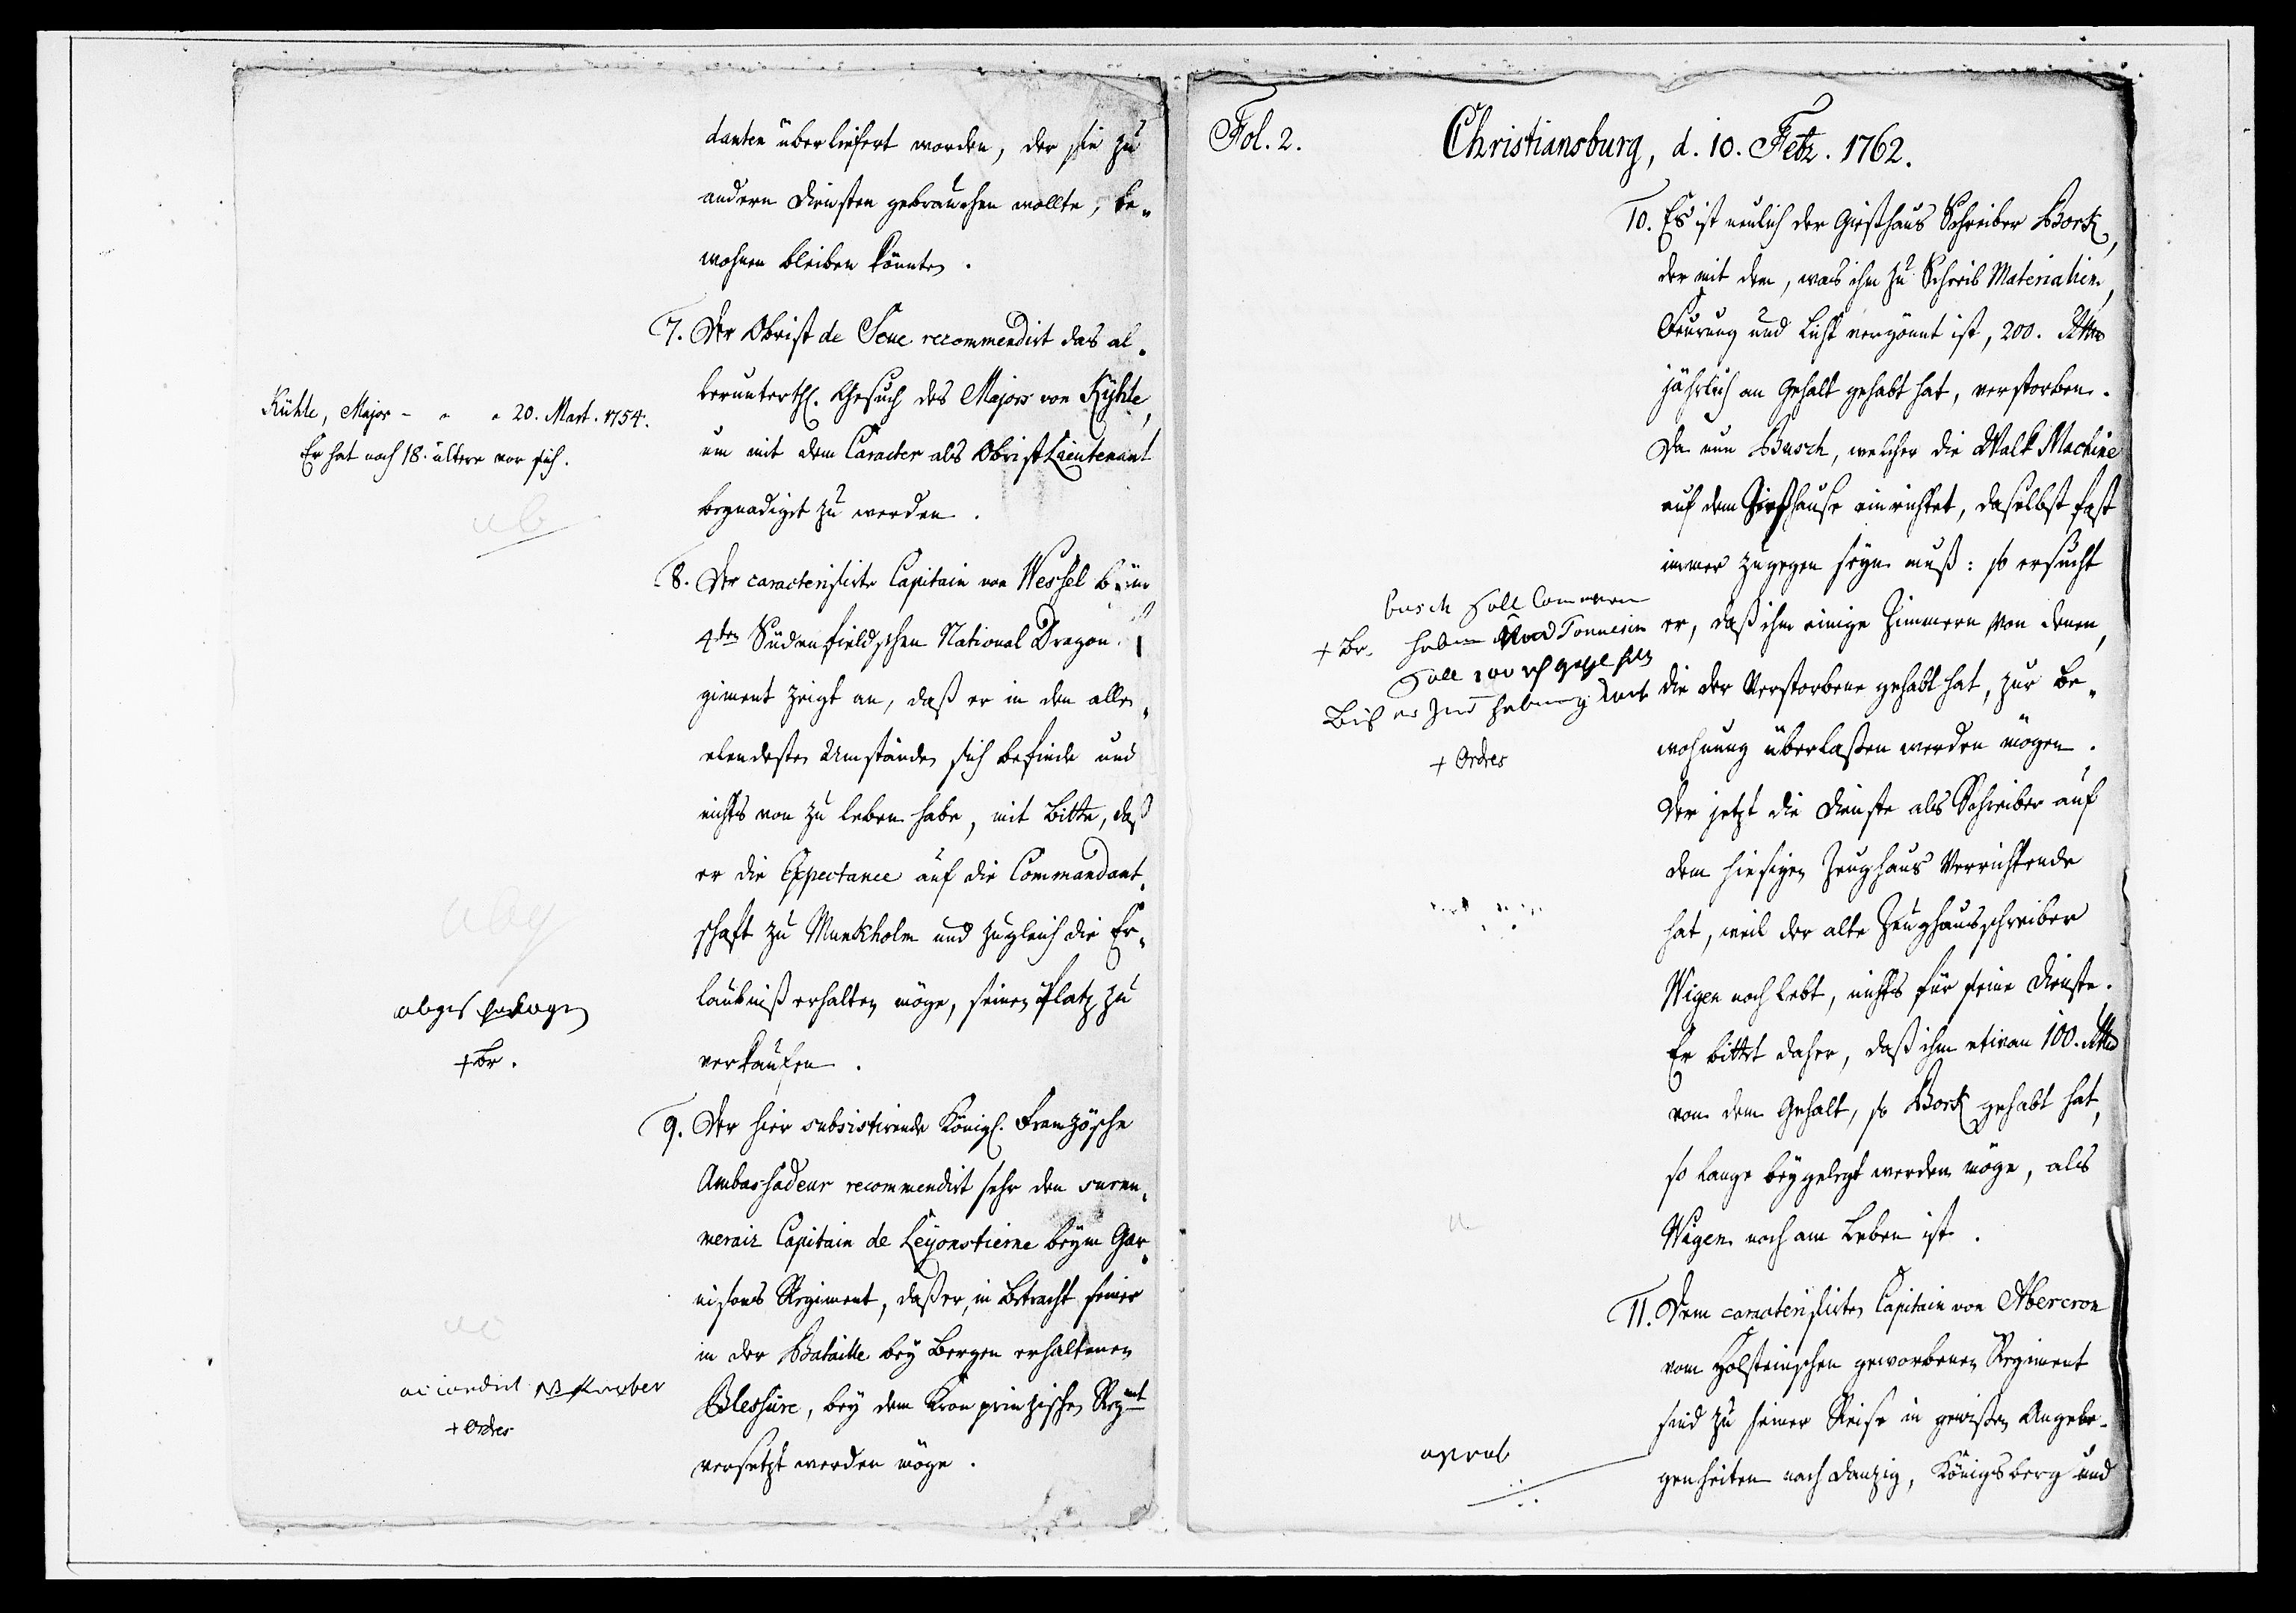 danten überliefert worden, der sie zu
andern Diensten gebrauchen wollte, be„
wohnen bleiben könnten.
7. Der Obrist de Seue recommendirt das al„
lerunterth. Gesuch des Majors von Kyhle,
um mit dem Caracter als Obrist Lieutenant
begnadiget zu werden.
Kühle, Major - " " 20. Mart. 1754.
Er hat noch 18. ältere vor sich.
ab
8. Der caracterisirte Capitain von Wessel beim
4ten Südenfieldschen National Dragon.
giment zeigt an, daß er in den aller„
elendesten Umständen sich befinde und
nichts von zu leben habe, mit Bitte, daß
er die Expectance auf die Commandant„
schaft zu Munkholm und zugleich die Er„
laubniß erhalten möge, seinen Platz zu
verkaufen.
abgeschlagen
+ Br.
9. Der hier subsistirende Königl. Französche
Ambassadeur recommendirt sehr den surnu„
merair Capitain de Leyonstierne beym Gar„
nisons Regiment, daß er, in Betracht seiner
in der Bataille bey Bergen erhaltenen
Blessure, bey dem Kronprinzischen Regmt
versetzt werden möge.
accordirt
+ Ordres
Fol. 2.
Christiansburg, d. 10. Febr. 1762.
10. Es ist neulich der Gießhaus Schreiber Bork,
der mit dem, was ihm zu Schreib Materialien,
Feurung und Licht vergönnt ist, 200. Rthlr
jährlich an Gehalt gehabt hat, verstorben.
Da nun Busch, welcher die Walk Machine
auf dem Gießhause einrichtet, daselbst fast
immer zugegen seyn muß: so ersucht
er, daß ihm einige Zimmern von denen,
die der Verstorbene gehabt hat, zur Be„
wohnung überlaßen werden mögen.
Der jetzt die Dienste als Schreiber auf
dem hiesigen Zeughaus Verrichtende
hat, weil der alte Zeughausschreiber
Wigen noch lebt, nichts für seine Dienste.
Er bittet daher, daß ihm etwan 100. Rthlr
von dem Gehalt, so Bork gehabt hat,
so lange beygelegt werden möge, als
Wigen noch am Leben ist.
busch soll
+ Br. haben
soll 100
+ Ordres
11. Dem caracterisirten Capitain von Abercron
vom Holsteinschen geworbenen Regiment
sind zu seiner Reise in gewißen Angele„
genheiten nach Danzig, Königsberg und